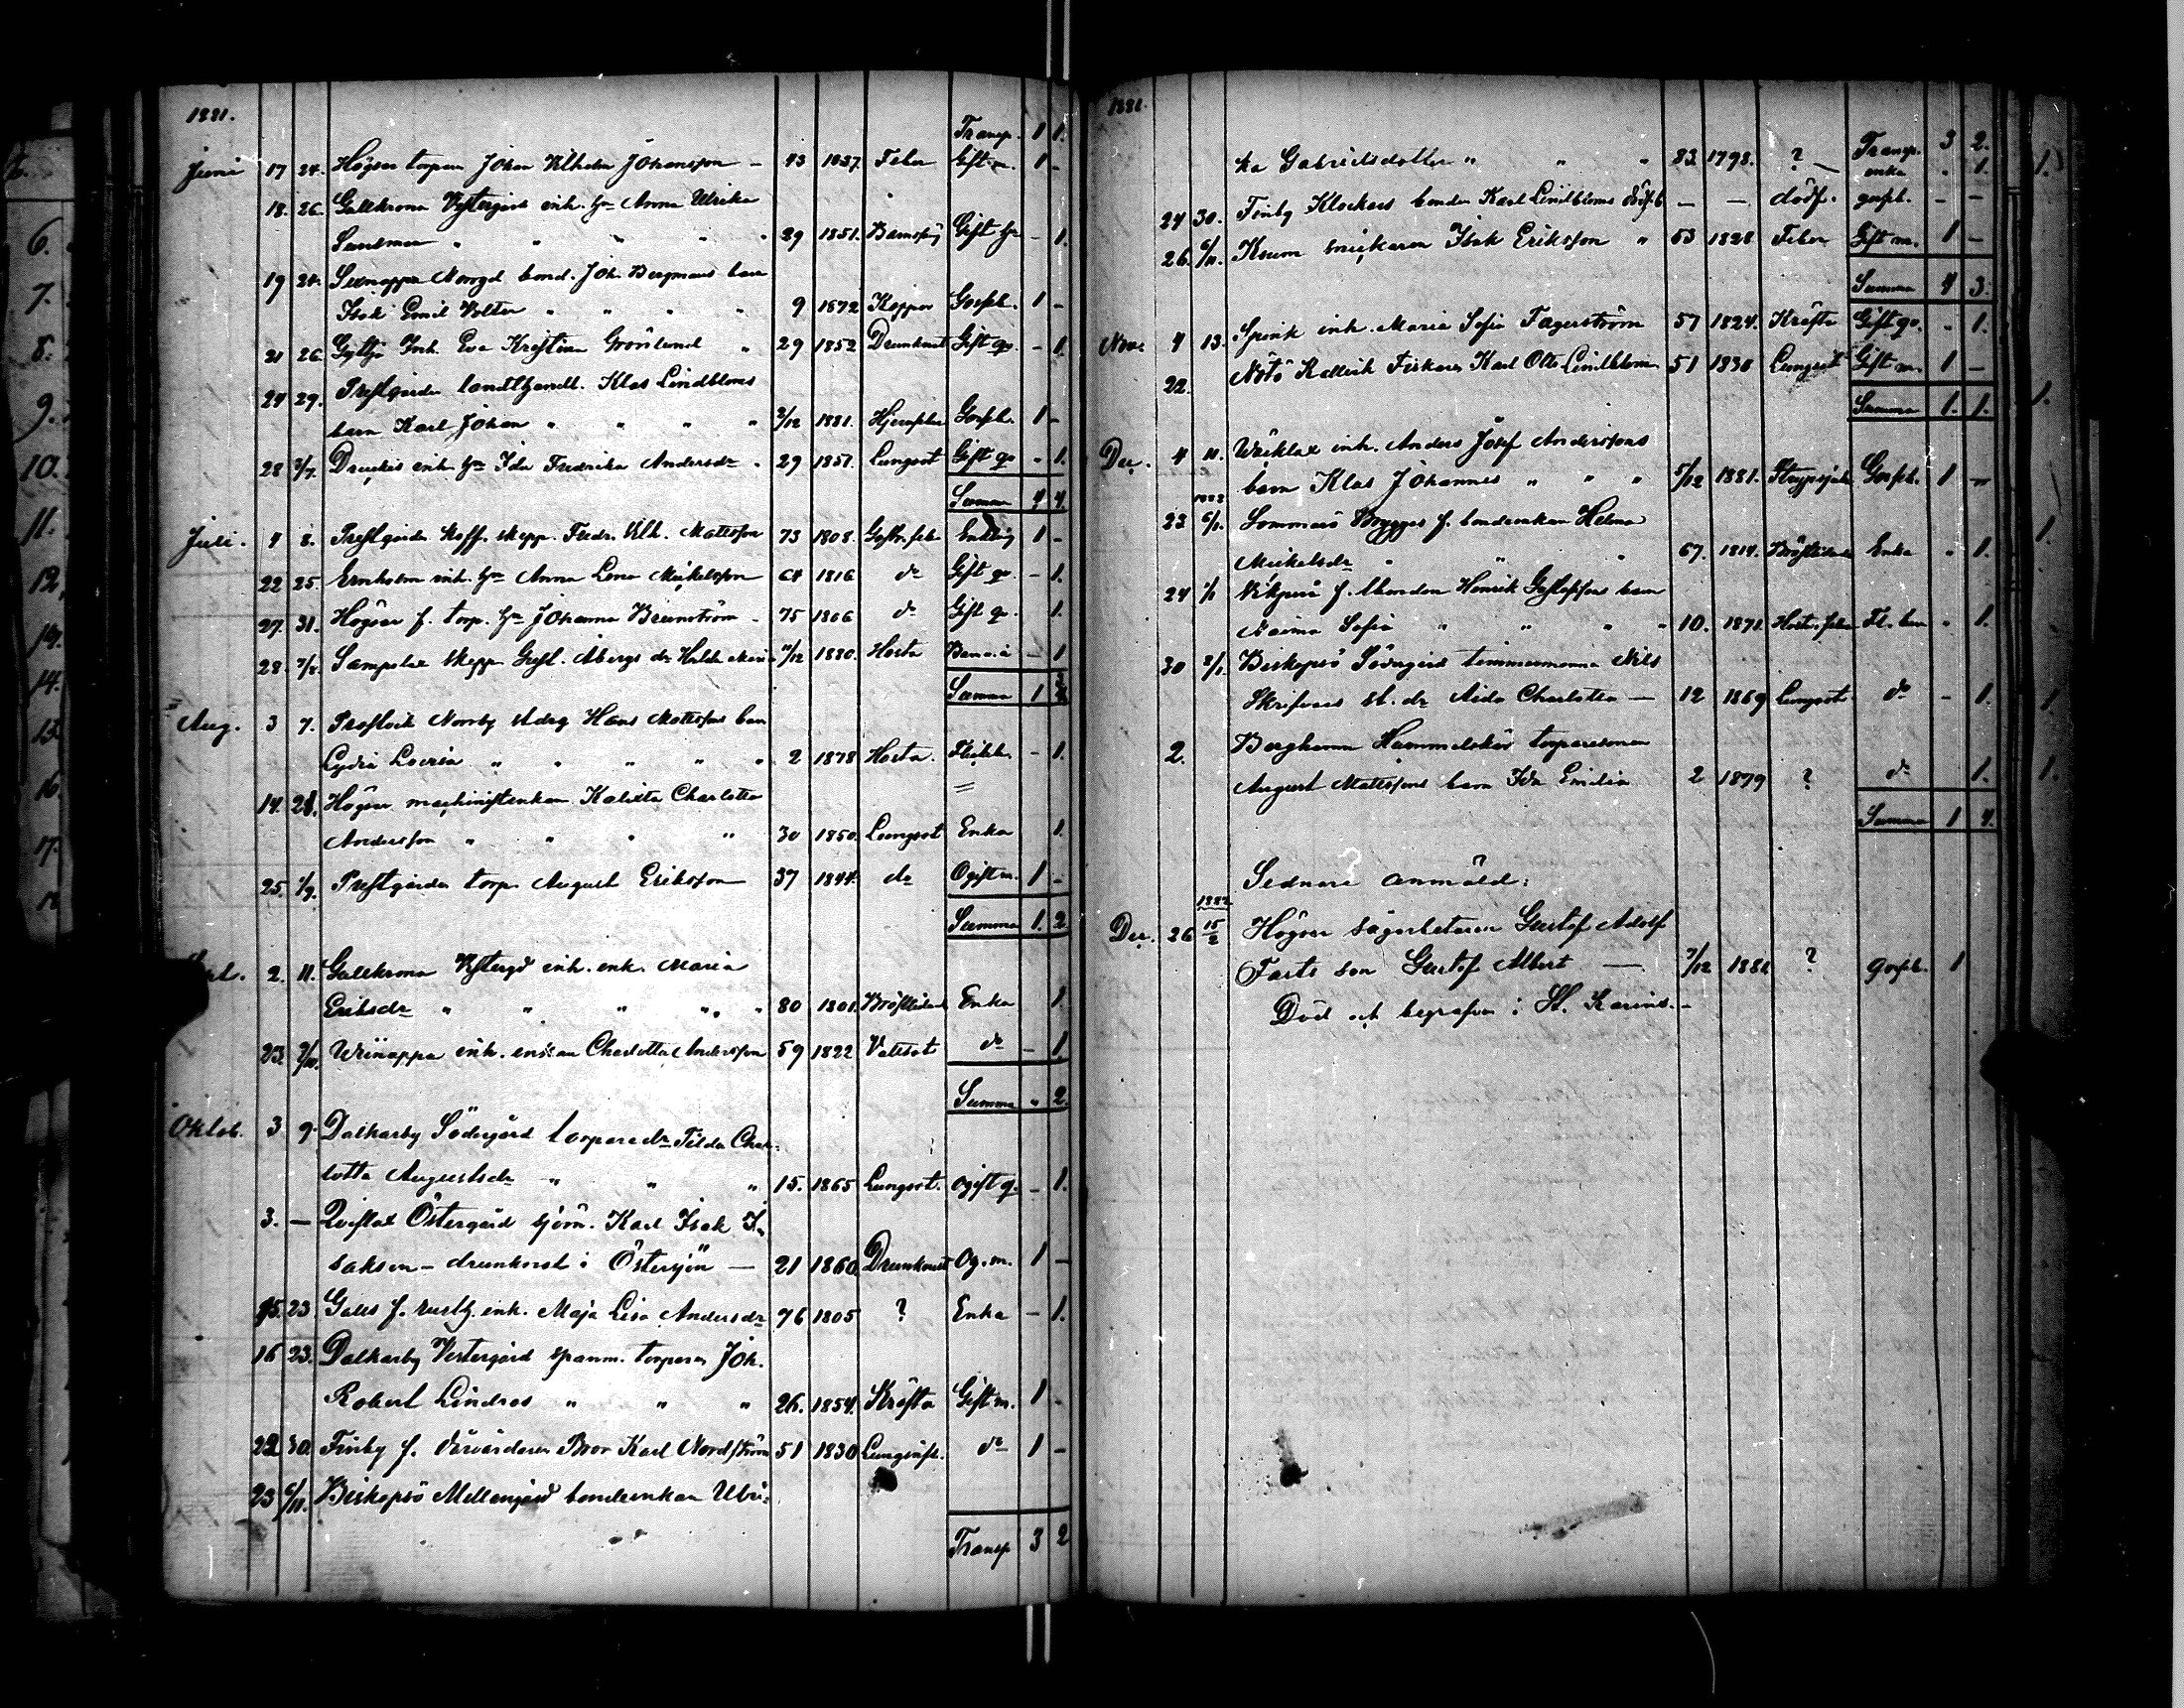 1881.
Transp. 1 1.
Juni 17 24. Högsar torparen Johan Vilhelm Johansson - 43 1837. Feber Gift m. 1 -
18. 26. Galtkrona Vestergård inh. hu Anna Ulrika
Sandman " " " " " 29 1851. Barnsäng Gift hu - 1.
19 24. Norrgd bond. Joh. Bergmans barn
Isak Emil Valter " " " " 9 1872 Koppor Gossb. 1 -
21 26. Gyttja Inh. Eva Kristina Grönlund " 29 1852 Drunknat Gift qv. - 1.
24 29. Prestgården landthandl. Klas Lindbloms
barn Karl Johan " " " " 3/12 1881. Gossb. 1 -
28 3/7. inh. hu Ida Fredrika Andersdr " 29 1851. Lungsot Gift qv - 1.
Summa 4 4.
Juli. 4 8. Prestgården skepp. Fredr. Vilh. Mattsson 73 1808. Enkling 1 -
22 25. Ernholm inh. hu Anna Lena Mickelsson 64 1816 do Gift qv. - 1.
27. 31. Högsar f. torp. hu Johanna Brunström - 75 1806 do Gift qv. 1.
28. 7/8. skepp. Gust. Åbergs dr Hulda Maria 7/12 1880. Hosta - 1
Summa 1 3
Aug. 3 7. Prostvik Norrby Hans Mattssons barn
Lydia Lovisa " " " " " 2 1878 Hosta. Flickb. - 1.
14. 21. Högsar machinistenkan Kalixta Charlotta
Andersson " " " " 30 1850. Lungsot Enka 1.
25. 1/9. Prestgården torp. August Eriksson 37 1844. do Ogift m. 1 -
Summa 1. 2
2. 11. Galtkrona Vestergd inh. enk. Maria
Eriksdr " " " " " 80 1801. Bröstlidande Enka 1.
23. inh. enkan Charlotta Andersson 59 1822 Vattsot do - 1.
Summa " 2.
Oktob. 3 9. Dalkarby Södergård torparedr Tilda Char-
lotta Augustsdr " " " 15. 1865 Lungsot. ogift q. - 1.
3. - Qvistlax Östergård sjöm. Karl Isak I-
sakson - drunknat i Östersjön - 21 1860. Drunknat Og. m. 1 -
15. 23 Galts f. rusth. enk. Maja Lisa Andersdr 76 1805 ? Enka - 1.
16 23. Dalkarby Vestergård spanm. torparen Joh.
Robert Lindros " " " 26. 1854. Kräfta Gift m. 1 -
22 30. Finby f. Bror Karl Nordström 51 1830 do 1 -
23 6/11. Biskopsö Mellangård bondeenkan Ulri-
Transp 3 2
1881.
Transp. 3 2.
ka Gabrielsdotter " " " 83. 1798. ? enka " 1.
24 30. Finby Klockars bonden Karl Lindbloms dödf. b - - dödf. gossb. - -
26. 6/11. snickaren Isak Eriksson " 53 1828 Feber Gift m. 1 -
Summa 4 3.
Nov. 4 13. Spink inh. Maria Sofia Fagerström 57 1824. Kräfta Gift qv. " 1.
22. Nötö Fiskaren Karl Otto Lindblom 51 1830 Lungsot Gift m. 1 -
Summa 1. 1.
Dec. 4 11. inh. Anders Josef Anderssons
barn Klas Johannes " " " 5/12 1881. Strypsjuka Gossb. 1 "
1882
23 6/1. f. bondenkan Helena
Mickelsdr " " " 67. 1814. Bröstlidande Enka " 1.
24 1/1 f. bonden Henrik Gustafssons barn
Naima Sofia " " " " 10. 1871. Fl. barn " 1.
30 8/1. Biskopsö Södergård timmermannen Nils
Skrifvars st. dr Aida Charlotta - 12 1869 Lungsot. do - 1.
2. Bergham Hammelskär torparesonen
August Mattssons barn Ida Emilia 2 1879 ? do 1.
Summa 1 4.
Sednare anmäld:
1882
Dec. 26 15/2 Högsar sågarbetaren Gustaf Adolf
Farts son Gustaf Albert - 7/12 1881 ? gossb. 1
Död och begrafven i St. Karins. -